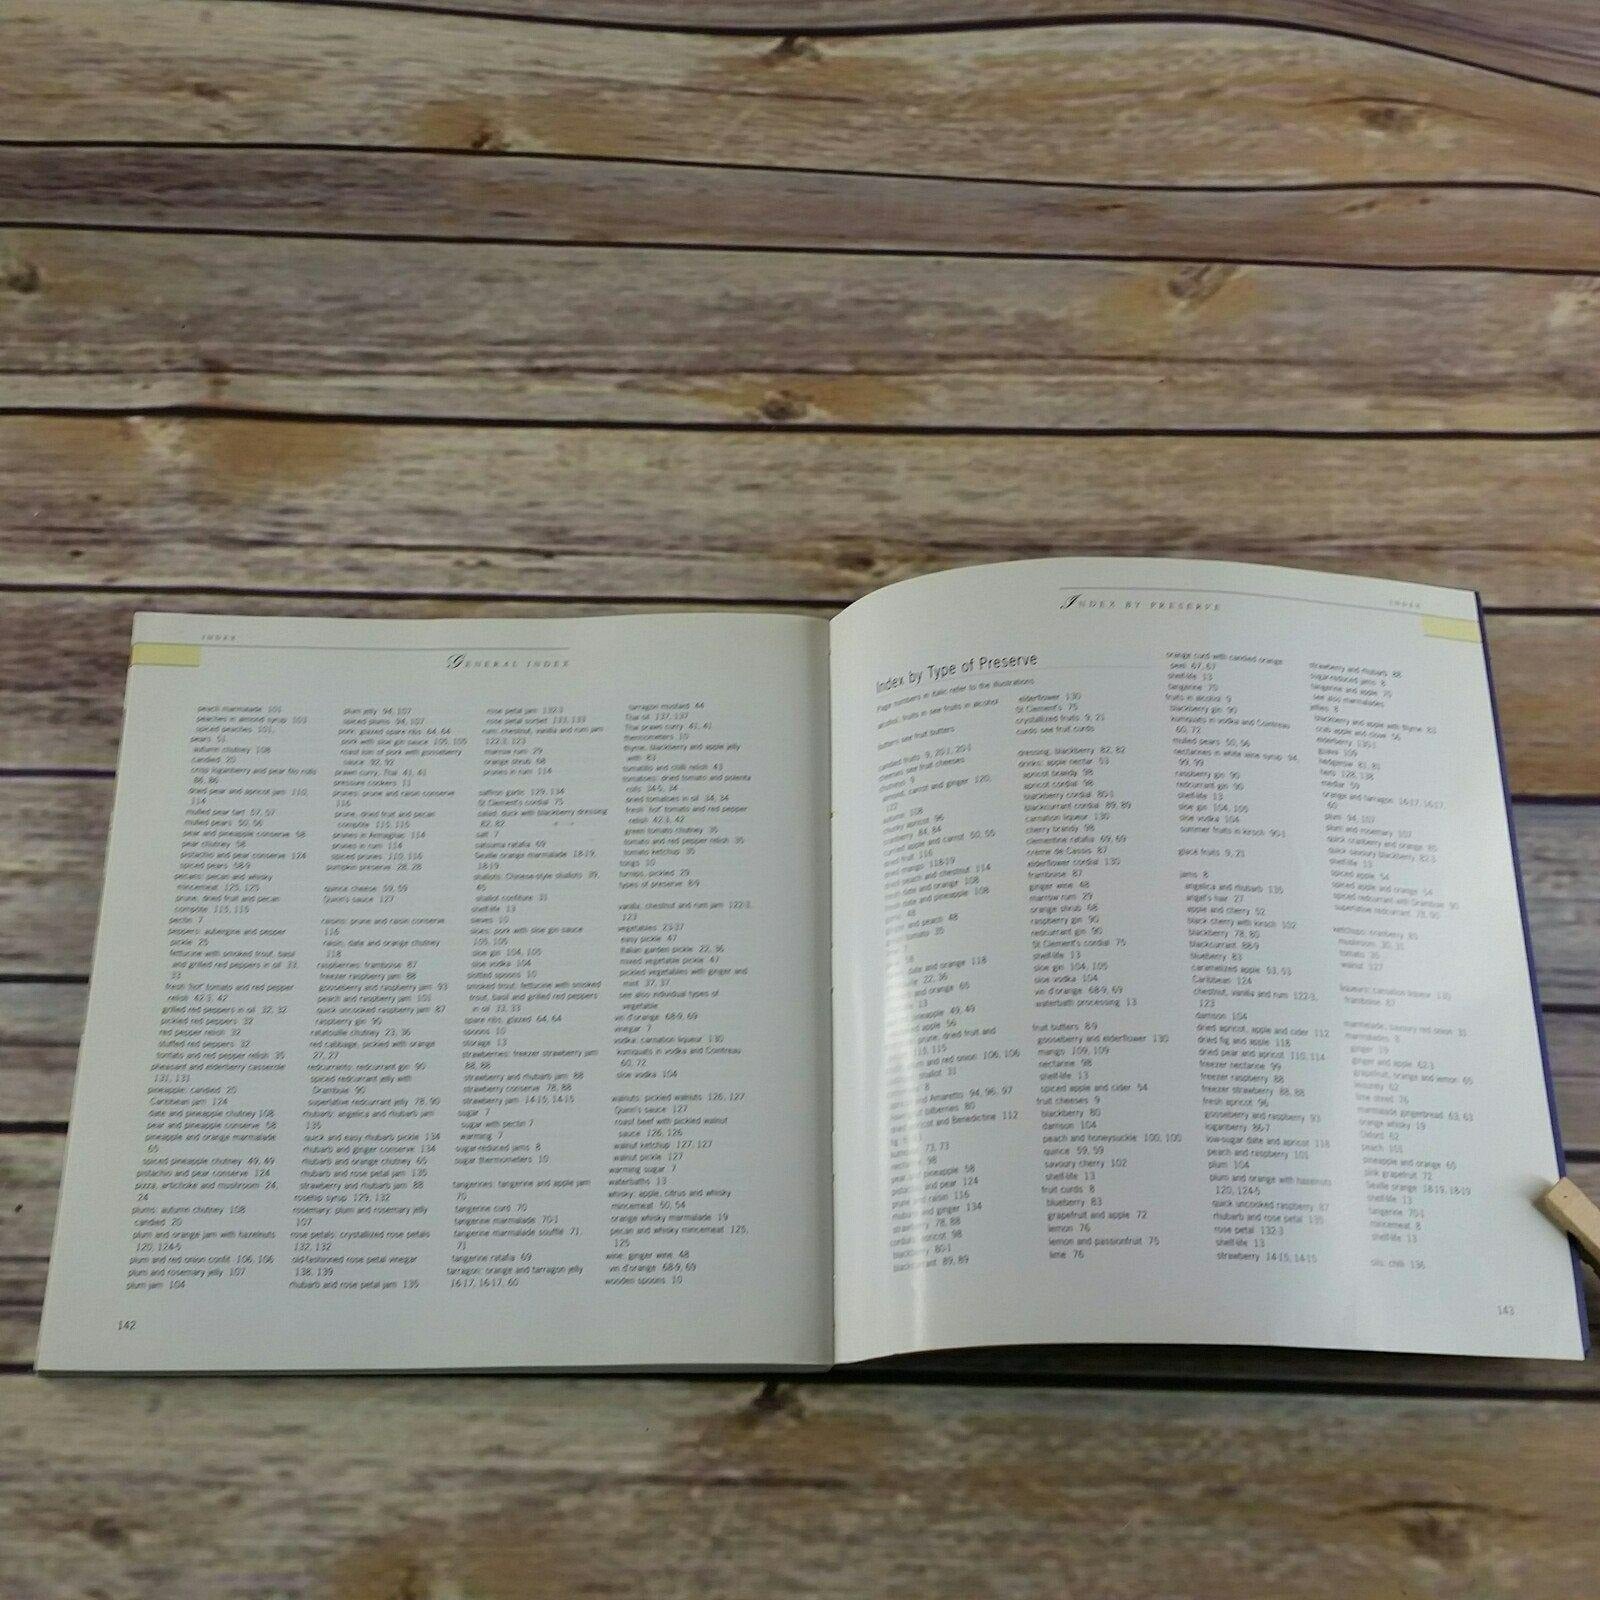 INDEX
GENERAL INDEX
peach marmalade 101
peaches in almond syrup 103
spiced peaches 101,
pears 51
autumn chutney 108
candied 20
crisp loganberry and pear filo rolls
86, 86
dried pear and apricot jam 110,
114
mulled pear tart 57, 57
mulled pears 50, 56
pear and pineapple conserve 58
pear chutney 58
pistachio and pear conserve 124
spiced pears 58-9
pecans: pecan and whisky
mincemeat 125, 125
prune, dried fruit and pecan
compôte 115, 115
pectin 7
peppers: aubergine and pepper
pickle 25
fettucine with smoked trout, basil
and grilled red peppers in oil 33,
33
fresh 'hot' tomato and red pepper
relish 42-3, 42
grilled red peppers in oil 32, 32
pickled red peppers 32
red pepper relish 32
stuffed red peppers 32
tomato and red pepper relish 35
pheasant and elderberry casserole
131, 131
pineapple: candied 20
Caribbean jam 124
date and pineapple chutney 108
pear and pineapple conserve 58
pineapple and orange marmalade
65
spiced pineapple chutney 49, 49
pistachio and pear conserve 124
pizza, artichoke and mushroom 24,
24
plums: autumn chutney 108
candied 20
plum and orange jam with hazelnuts
120, 124-5
plum and red onion confit 106, 106
plum and rosemary jelly 107
plum jam 104
plum jelly 94, 107
spiced plums 94, 107
pork: glazed spare ribs 64, 64
pork with sloe gin sauce 105, 105
roast loin of pork with gooseberry
sauce 92, 92
prawn curry, Thai 41, 41
pressure cookers 11
prunes: prune and raisin conserve
116
prune, dried fruit and pecan
compôte 115, 115
prunes in Armagnac 114
prunes in rum 114
spiced prunes 110, 116
pumpkin preserve 28, 28
quince cheese 59, 59
Quinn's sauce 127
raisins: prune and raisin conserve
116
raisin, date and orange chutney
118
raspberries: framboise 87
freezer raspberry jam 88
gooseberry and raspberry jam 93
peach and raspberry jam 101
quick uncooked raspberry jam 87
raspberry gin 90
ratatouille chutney 23, 36
red cabbage, pickled with orange
27, 27
redcurrants: redcurrant gin 90
spiced redcurrant jelly with
Drambuie 90
superlative redcurrant jelly 78, 90
rhubarb: angelica and rhubarb jam
135
quick and easy rhubarb pickle 134
rhubarb and ginger conserve 134
rhubarb and orange chutney 65
rhubarb and rose petal jam 135
strawberry and rhubarb jam 88
rosehip syrup 129, 132
rosemary: plum and rosemary jelly
107
rose petals: crystallized rose petals
132, 132
old-fashioned rose petal vinegar
138, 139
rhubarb and rose petal jam 135
rose petal jam 132-3
rose petal sorbet 133, 133
rum: chestnut, vanilla and rum jam
122-3, 123
marrow rum 29
orange shrub 68
prunes in rum 114
saffron garlic 129, 134
St Clement's cordial 75
salad, duck with blackberry dressing
82, 82
salt 7
satsuma ratafia 69
Seville orange marmalade 18-19,
18-19
shallots: Chinese-style shallots 39,
45
shallot confiture 31
shelf-life 13
sieves 10
sloes: pork with sloe gin sauce
105, 105
sloe gin 104, 105
sloe vodka 104
slotted spoons 10
smoked trout, fettucine with smoked
trout, basil and grilled red peppers
in oil 33, 33
spare ribs, glazed 64, 64
spoons 10
storage 13
strawberries: freezer strawberry jam
88, 88
strawberry and rhubarb jam 88
strawberry conserve 78, 88
strawberry jam 14-15, 14-15
sugar 7
sugar with pectin 7
warming 7
sugar-reduced jams 8
sugar thermometers 10
tangerines: tangerine and apple jam
70
tangerine curd 70
tangerine marmalade 70-1
tangerine marmalade soufflé 71,
71
tangerine ratafia 69
tarragon: orange and tarragon jelly
16-17, 16-17, 60
tarragon mustard 44
Thai oil 137, 137
Thai prawn curry 41, 41
thermometers 10
thyme, blackberry and apple jelly
with 83
tomatillo and chilli relish 43
tomatoes: dried tomato and polenta
rolls 34-5, 34
dried tomatoes in oil 34, 34
fresh 'hot' tomato and red pepper
relish 42-3, 42
green tomato chutney 35
tomato and red pepper relish 35
tomato ketchup 35
tongs 10
turnips, pickled 29
types of preserve 8-9
vanilla, chestnut and rum jam 122-3,
123
vegetables 23-37
easy pickle 47
Italian garden pickle 22, 36
mixed vegetable pickle 47
pickled vegetables with ginger and
mint 37, 37
see also individual types of
vegetable
vin d'orange 68-9, 69
vinegar 7
vodka: carnation liqueur 130
kumquats in vodka and Cointreau
60, 72
sloe vodka 104
walnuts: pickled walnuts 126, 127
Quinn's sauce 127
roast beef with pickled walnut
sauce 126, 126
walnut ketchup 127, 127
walnut pickle 127, 127
warming sugar 7
waterbaths 13
whisky: apple, citrus and whisky
mincemeat 50, 54
orange whisky marmalade 19
pecan and whisky mincemeat 125,
125
wine: ginger wine 48
vin d'orange 68-9, 69
wooden spoons 10
142
INDEX BY PRESERVE
INDEX
Index by Type of Preserve
Page numbers in italic refer to the illustrations
alcohol, fruits in see fruits in alcohol
butters see fruit butters
candied fruits 9, 20-1, 20-1
cheeses see fruit cheeses
chutneys 9
almond, carrot and ginger 120,
122
autumn 108
chunky apricot 96
cranberry 84, 84
curried apple and carrot 50, 55
dried fruit 116
dried mango 118-19
dried peach and chestnut 114
fresh date and orange 108
fresh date and pineapple 108
48
and peach 48
tomato 35
date and orange 118
22, 36
and orange 65
13
pineapple 49, 49
apple 56
prune, dried fruit and
115, 115
and red onion 106, 106
shallot 31
8
and Amaretto 94, 96, 97
bilberries 80
apricot and Benedictine 112
fig
73, 73
98
pineapple 58
and pear 124
and raisin 116
and ginger 134
78, 88
apricot 98
blackberry 80-1
blackcurrant 89, 89
elderflower 130
St Clement's 75
crystallized fruits 9, 21
curds see fruit curds
dressing, blackberry 82, 82
drinks: apple nectar 53
apricot brandy 98
apricot cordial 98
blackberry cordial 80-1
blackcurrant cordial 89, 89
carnation liqueur 130
cherry brandy 98
clementine ratafia 69, 69
crème de Cassis 87
elderflower cordial 130
framboise 87
ginger wine 48
marrow rum 29
orange shrub 68
raspberry gin 90
redcurrant gin 90
St Clement's cordial 75
shelf-life 13
sloe gin 104, 105
sloe vodka 104
vin d'orange 68-9, 69
waterbath processing 13
fruit butters 8-9
gooseberry and elderflower 130
mango 109, 109
nectarine 98
shelf-life 13
spiced apple and cider 54
fruit cheeses 9
blackberry 80
damson 104
peach and honeysuckle 100, 100
quince 59, 59
savoury cherry 102
shelf-life 13
fruit curds 8
blueberry 83
grapefruit and apple 72
lemon 76
lemon and passionfruit 75
lime 76
orange curd with candied orange
peel 67, 67
shelf-life 13
tangerine 70
fruits in alcohol 9
blackberry gin 90
kumquats in vodka and Cointreau
60, 72
mulled pears 50, 56
nectarines in white wine syrup 94,
99, 99
raspberry gin 90
redcurrant gin 90
shelf-life 13
sloe gin 104, 105
sloe vodka 104
summer fruits in kirsch 90-1
glacé fruits 9, 21
jams 8
angelica and rhubarb 135
angel's hair 27
apple and cherry 52
black cherry with kirsch 102
blackberry 78, 80
blackcurrant 88-9
blueberry 83
caramelized apple 53, 53
Caribbean 124
chestnut, vanilla and rum 122-3,
123
damson 104
dried apricot, apple and cider 112
dried fig and apple 118
dried pear and apricot 110, 114
freezer nectarine 99
freezer raspberry 88
freezer strawberry 88, 88
fresh apricot 96
gooseberry and raspberry 93
loganberry 86-7
low-sugar date and apricot 118
peach and raspberry 101
plum 104
plum and orange with hazelnuts
120, 124-5
quick uncooked raspberry 87
rhubarb and rose petal 135
rose petal 132-3
shelf-life 13
strawberry 14-15, 14-15
strawberry and rhubarb 88
sugar-reduced jams 8
tangerine and apple 70
see also marmalades
jellies 8
blackberry and apple with thyme 83
crab apple and clove 56
elderberry 130-1
guava 109
hedgerow 81, 81
herb 128, 138
medlar 59
orange and tarragon 16-17, 16-17,
60
plum 94, 107
plum and rosemary 107
quick cranberry and orange 85
quick savoury blackberry 82-3
shelf-life 13
spiced apple 54
spiced apple and orange 54
spiced redcurrant with Drambuie 90
superlative redcurrant 78, 90
ketchups: cranberry 85
mushroom 30, 31
tomato 35
walnut 127
liqueurs: carnation liqueur 130
framboise 87
marmalade, savoury red onion 31
marmalades 8
ginger 19
ginger and apple 62-3
grapefruit, orange and lemon 65
leisurely 62
lime shred 76
marmalade gingerbread 63, 63
orange whisky 19
Oxford 62
peach 101
pineapple and orange 65
pink grapefruit 72
Seville orange 18-19, 18-19
shelf-life 13
tangerine 70-1
mincemeat 8
shelf-life 13
oils: chilli 136
143